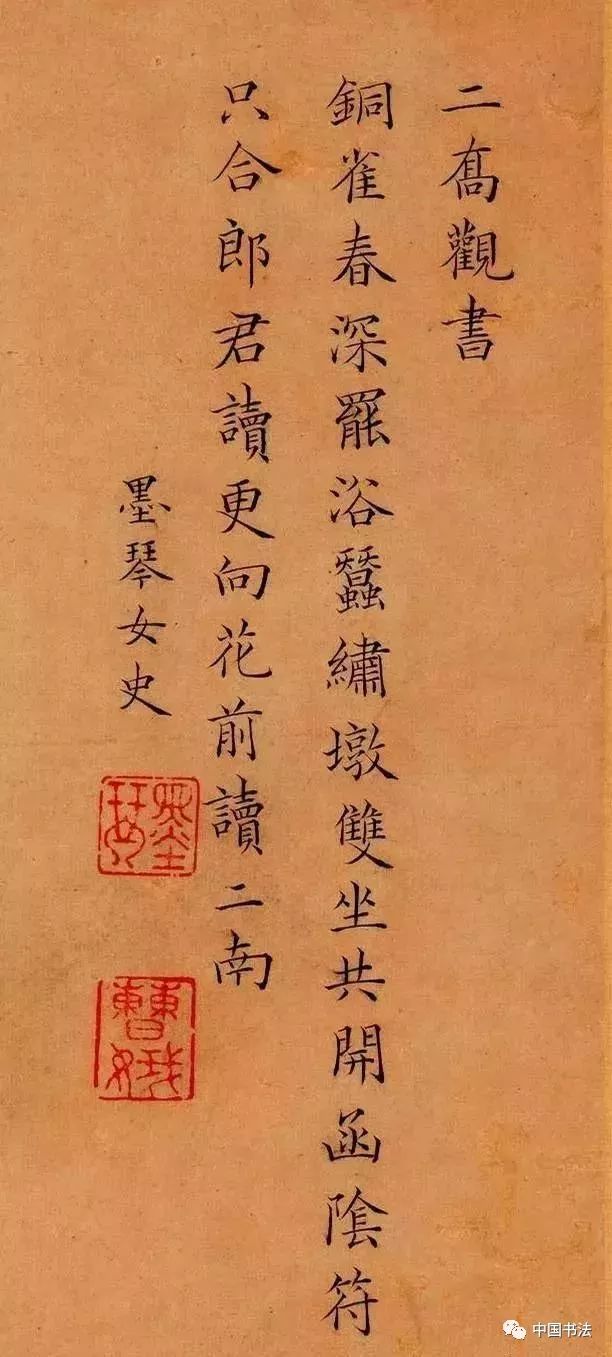 二喬觀書
銅雀春深罷浴蠶繡墩雙坐共開函陰符
只合郎君讀更向花前讀二南
墨琴女史
墨琴
曹娥
中国书法